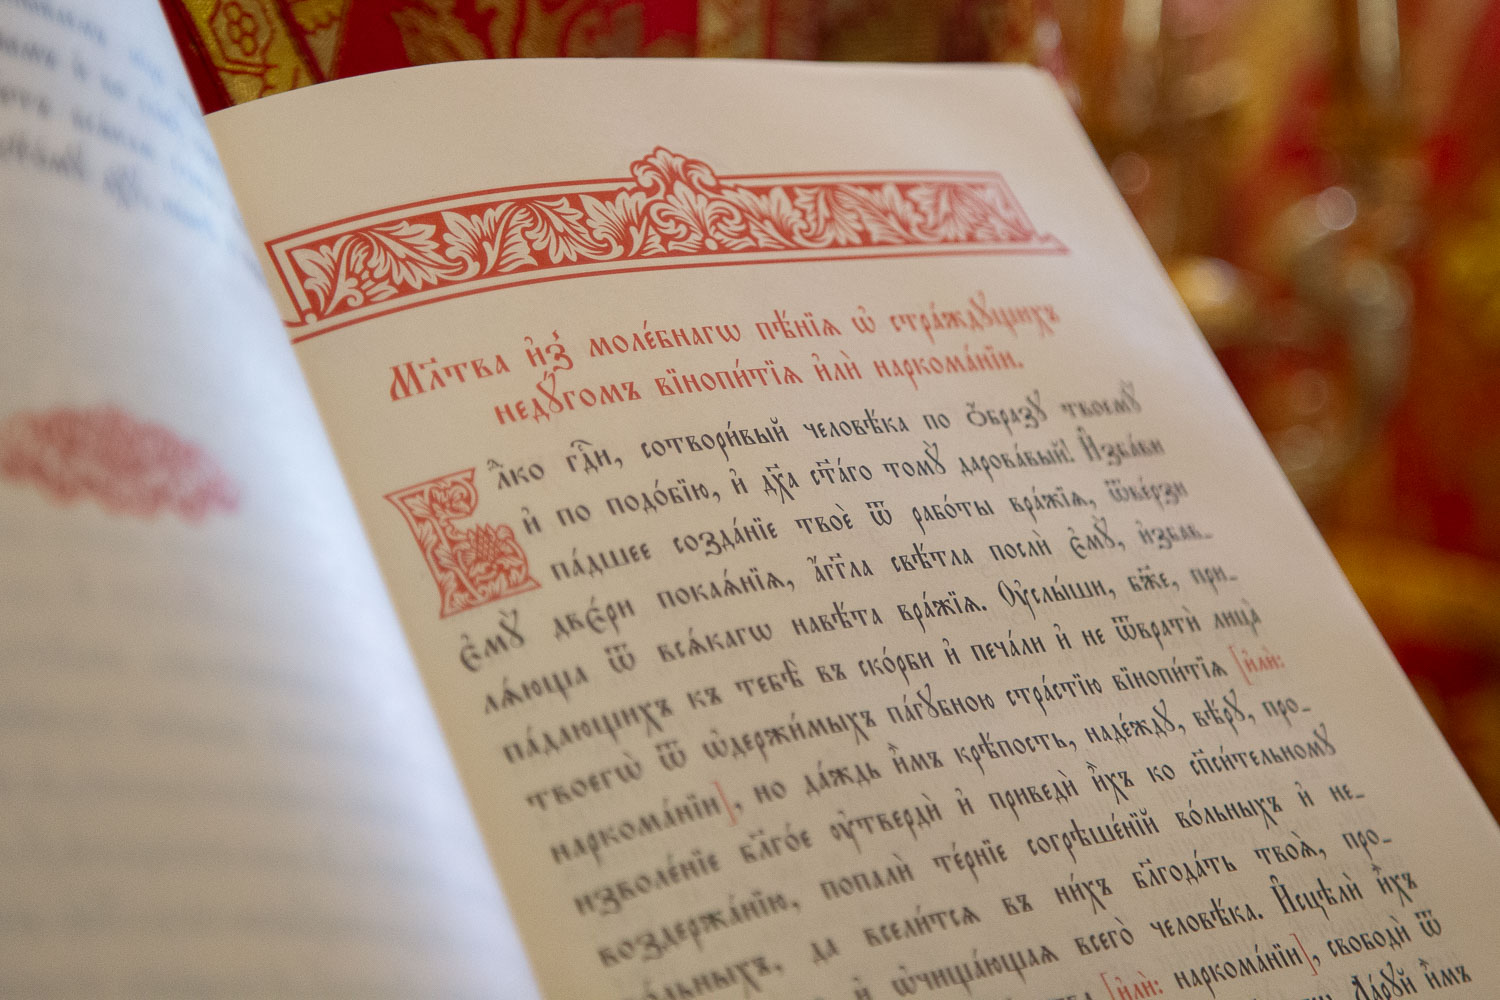 Мл҃тва и҆з̾ моле́бнагѡ пѣ́нїѧ ѡ҆ стра́ждꙋщихъ
недꙋ́гомъ вїнопи́тїѧ и҆лѝ наркома́нїи.
Влⷣко гдⷭ҇и, сотвори́вый человѣ́ка по ѻ҆́бразꙋ твоемꙋ̀
и҆ по подо́бїю, и҆ дх҃а ст҃а́го томꙋ̀ дарова́вый! И҆зба́ви
па́дшее созда́нїе твоѐ ѿ рабо́ты вра́жїѧ, ѿве́рзи
є҆мꙋ̀ двє́ри покаѧ́нїѧ, а҆́гг҃ла свѣ́тла послѝ є҆мꙋ̀, и҆збав_
лѧ́юща ѿ всѧ́кагѡ навѣ́та вра́жїѧ. Оу҆слы́ши, бж҃е, при_
па́дающихъ къ тебѣ̀ въ ско́рби и҆ печа́ли и҆ не ѿвратѝ лица̀
твоегѡ̀ ѿ ѡ҆держи́мыхъ па́гꙋбною стра́стїю вїнопи́тїѧ [и҆лѝ:
наркома́нїи], но да́ждь и҆̀мъ крѣ́пость, наде́ждꙋ, вѣ́рꙋ, про_
изволе́нїе бл҃го́е оу҆твердѝ и҆ приведѝ и҆̀хъ ко сп҃си́тельномꙋ
воздержа́нїю, попалѝ те́рнїе согрѣше́нїй во́льныхъ и҆ не_
во́льныхъ, да всели́тсѧ въ ни́хъ бл҃года́ть твоѧ̀, про_
и҆ ѡ҆чища́ющаѧ всего̀ человѣ́ка. И҆сцѣлѝ и҆̀хъ
[и҆лѝ: наркома́нїи], свободѝ ѿ
Да́рꙋй и҆̀мъ